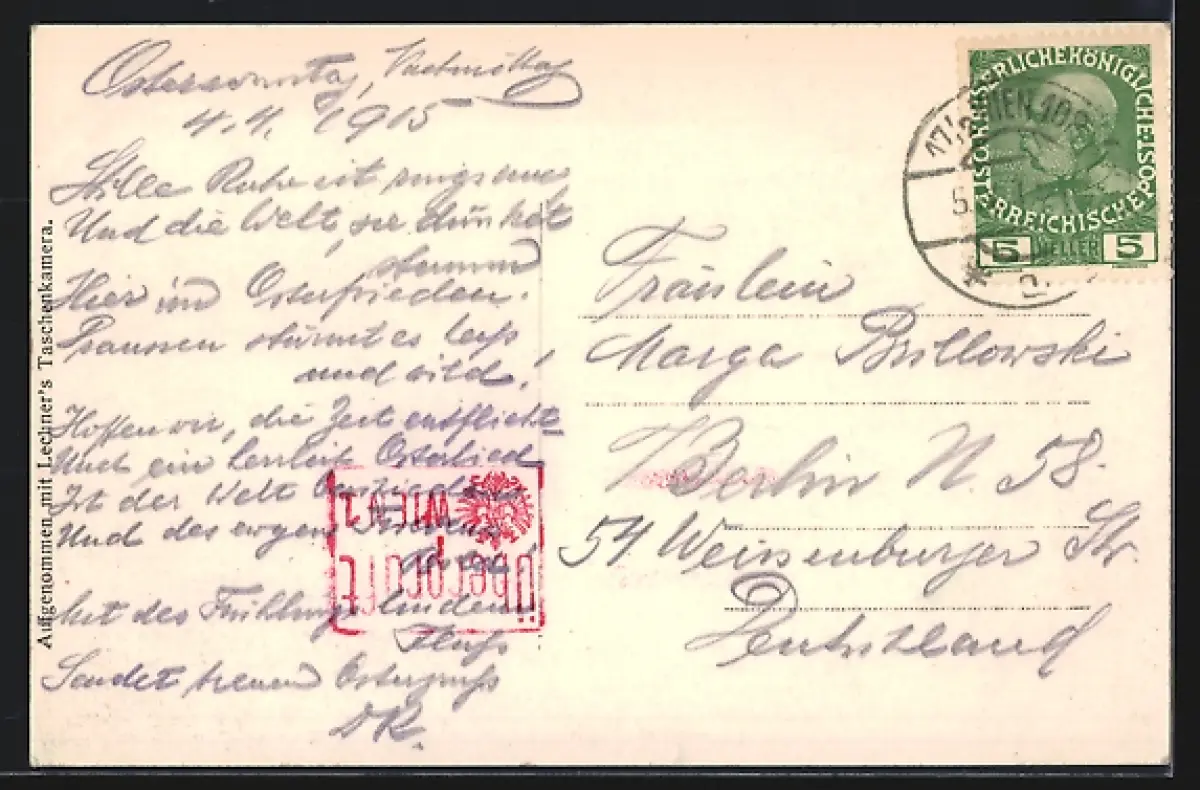 Ostersonntag, Nachmittag
4.4. 1915
Stille Ruhe ist ringsum
Und die Welt, sie dünket
stumm
Hier im Osterfrieden.
Draussen stürmt es
und wild!
Hoffen wir, die Zeit entflieht
Und ein Osterlied
Ist der Welt
Und des ewgen
Mit des Frühlings linden
Sendet treuen Ostergruss
DR.
Aufgenommen mit Lechner's Taschenkamera.
Überprüft
WIEN 1
KAISERLICHE KÖNIGLICHE ÖSTERREICHISCHE POST
5 HELLER 5
WIEN 10
Fräulein
Marga Brillowski
Berlin N. 58.
54 Weissenburger Str.
Deutschland